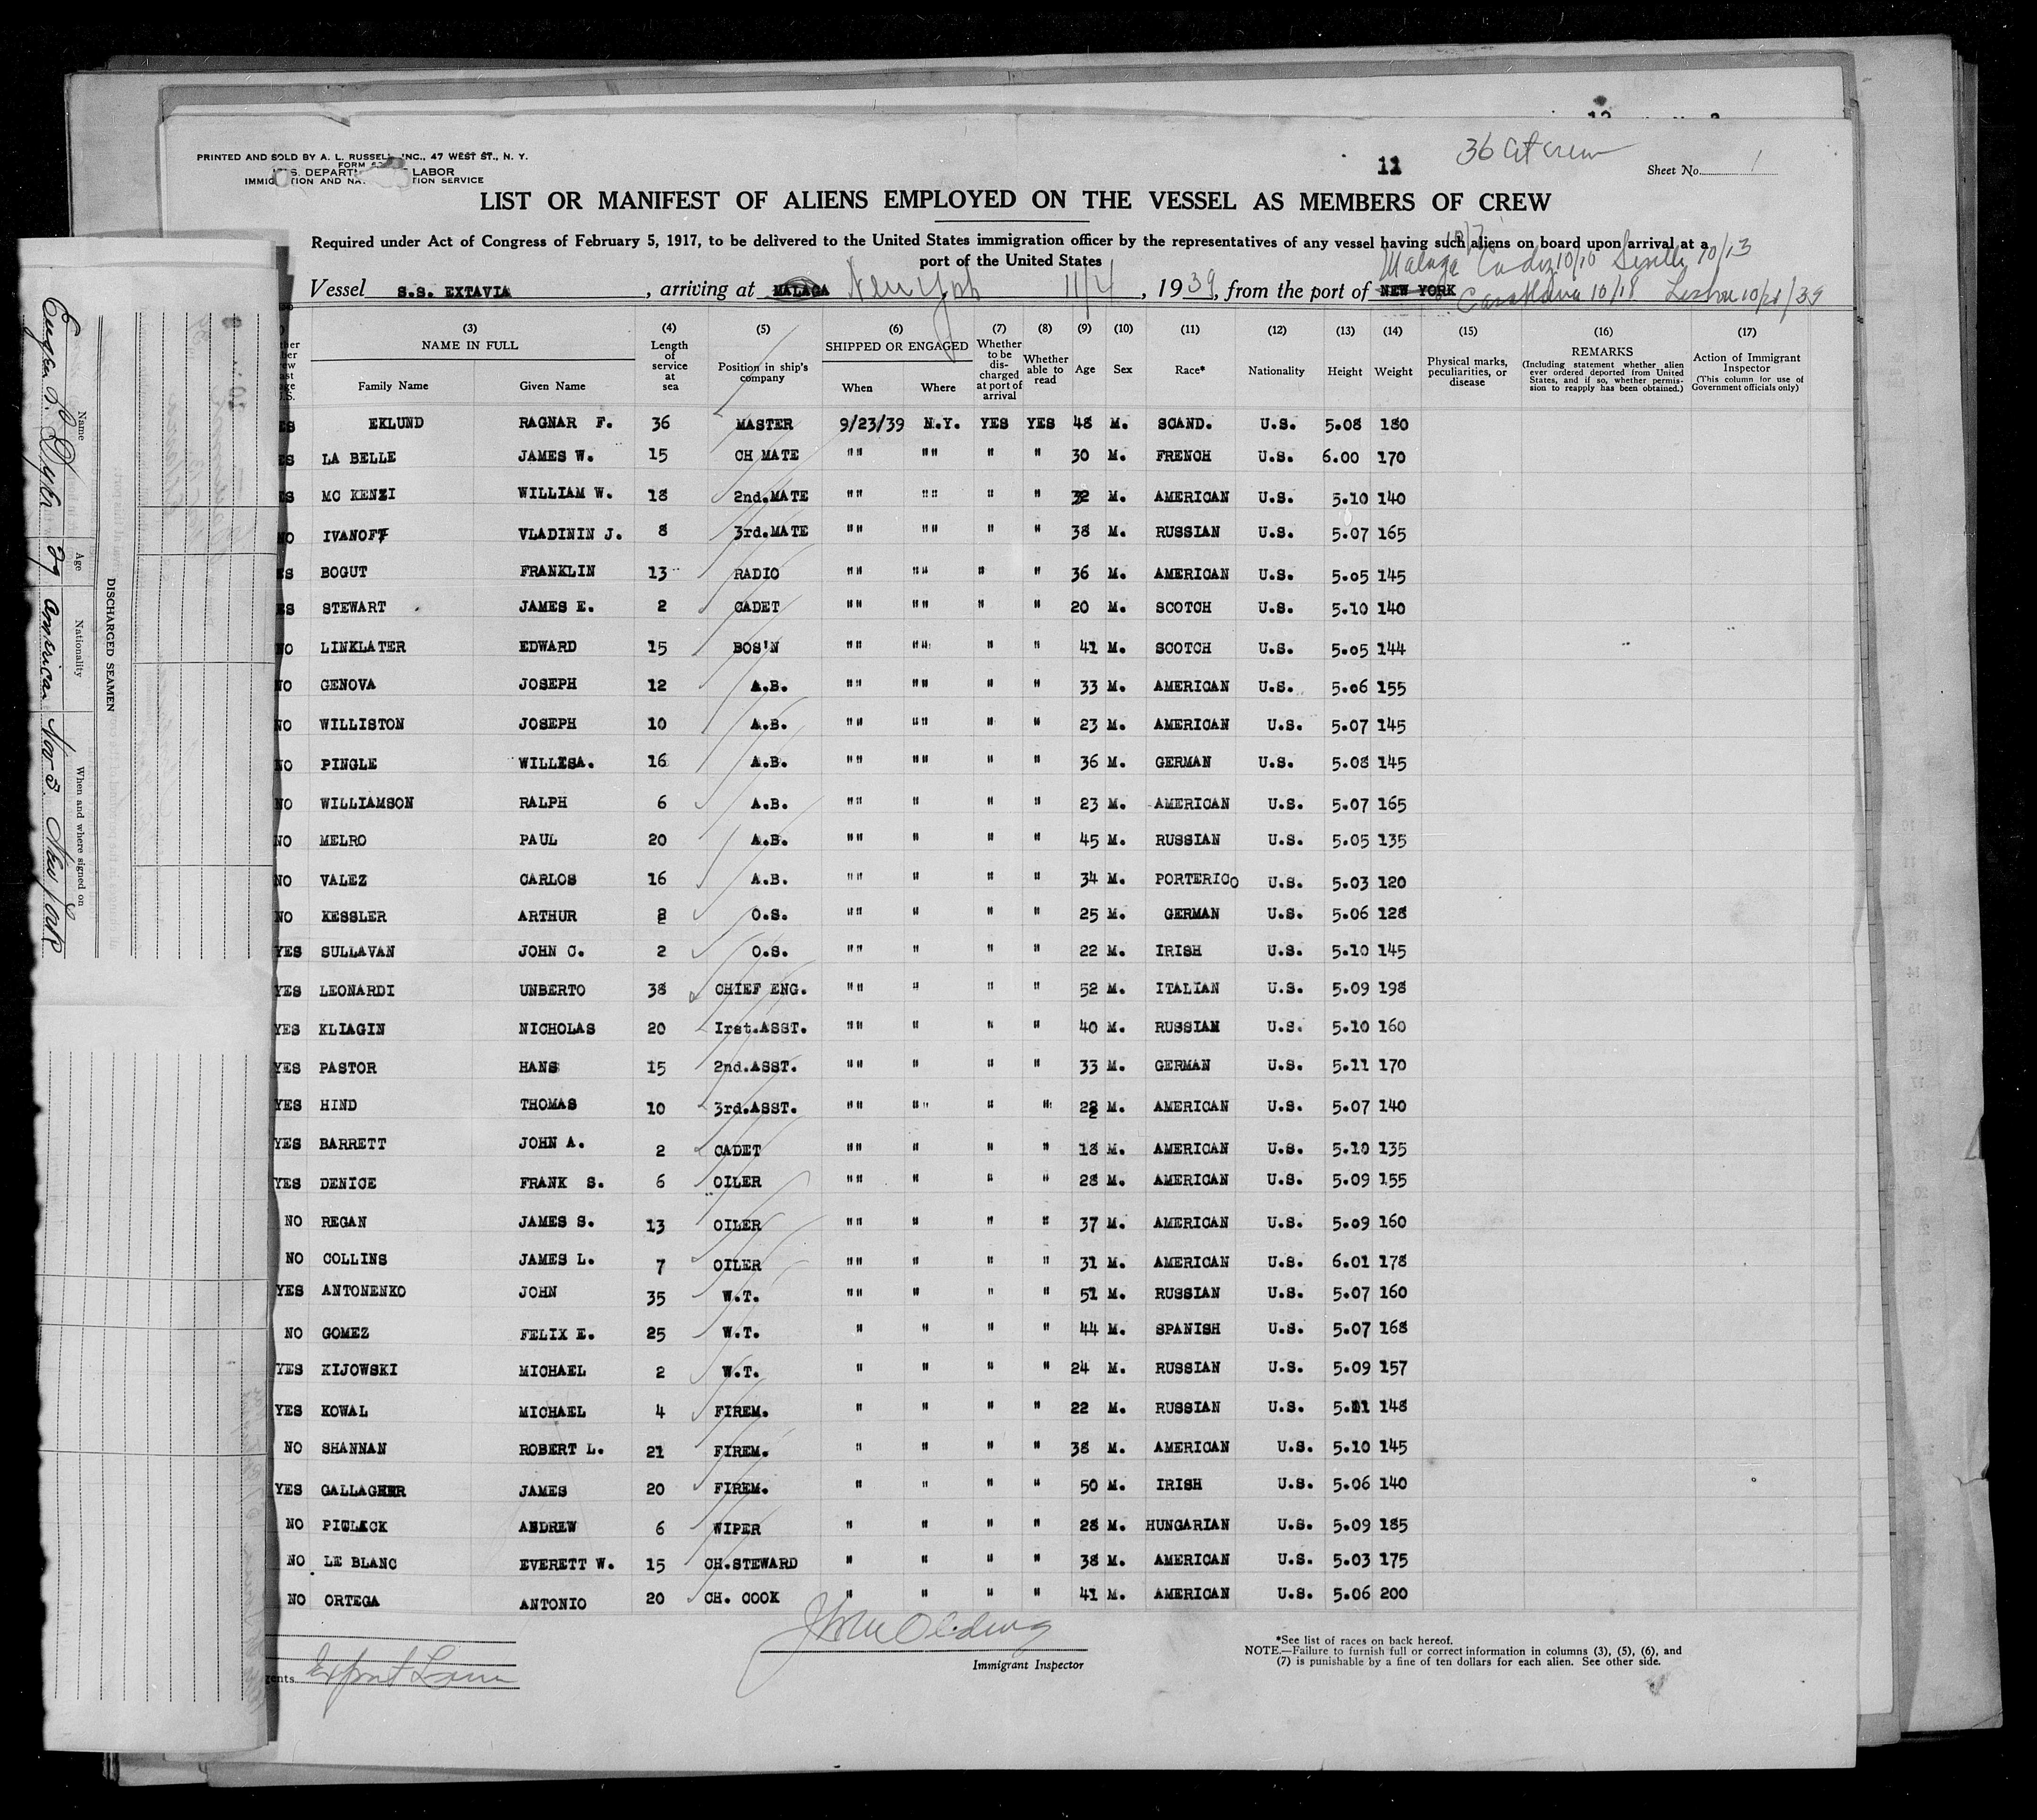 PRINTED AND SOLD BY A. L. RUSSELL, INC., 47 WEST ST., N. Y.
FORM
U.S. DEPARTMENT LABOR
IMMIGRATION AND NATION SERVICE
11
36 cit crew
Sheet No. 1
LIST OR MANIFEST OF ALIENS EMPLOYED ON THE VESSEL AS MEMBERS OF CREW
Required under Act of Congress of February 5, 1917, to be delivered to the United States immigration officer by the representatives of any vessel having such aliens on board upon arrival at a
port of the United States
Malaga Cadiz 10/10 Seville 10/13
Vessel S.S. EXTAVIA, arriving at MALAGA New York 11/4, 1939, from the port of NEW YORK
Casablanca 10/18 Lisbon 10/21/39
(3) (4) (5) (6) (7) (8) (9) (10) (11) (12) (13) (14) (15) (16) (17)
NAME IN FULL
Family Name Given Name
Length of service at sea
Position in ship's company
SHIPPED OR ENGAGED
When Where
Whether to be discharged at port of arrival
Whether able to read
Age Sex Race* Nationality Height Weight
Physical marks, peculiarities, or disease
REMARKS
(Including statement whether alien ever ordered deported from United States, and if so, whether permission to reapply has been obtained.)
Action of Immigrant Inspector
(This column for use of Government officials only)
ES EKLUND RAGNAR F. 36 MASTER 9/23/39 N.Y. YES YES 48 M. SCAND. U.S. 5.08 180
ES LA BELLE JAMES W. 15 CH MATE "" "" " " 30 M. FRENCH U.S. 6.00 170
ES MC KENZI WILLIAM W. 18 2nd.MATE "" "" " " 32 M. AMERICAN U.S. 5.10 140
NO IVANOFF VLADININ J. 8 3rd.MATE "" "" " " 38 M. RUSSIAN U.S. 5.07 165
ES BOGUT FRANKLIN 13 RADIO "" "" " " 36 M. AMERICAN U.S. 5.05 145
ES STEWART JAMES E. 2 CADET "" "" " " 20 M. SCOTCH U.S. 5.10 140
NO LINKLATER EDWARD 15 BOS'N "" "" " " 41 M. SCOTCH U.S. 5.05 144
NO GENOVA JOSEPH 12 A.B. "" "" " " 33 M. AMERICAN U.S. 5.06 155
NO WILLISTON JOSEPH 10 A.B. "" "" " " 23 M. AMERICAN U.S. 5.07 145
NO PINGLE WILLESA. 16 A.B. "" "" " " 36 M. GERMAN U.S. 5.08 145
NO WILLIAMSON RALPH 6 A.B. "" " " " 23 M. AMERICAN U.S. 5.07 165
NO MELRO PAUL 20 A.B. "" " " " 45 M. RUSSIAN U.S. 5.05 135
NO VALEZ CARLOS 16 A.B. "" " " " 34 M. PORTERICO U.S. 5.03 120
NO KESSLER ARTHUR 2 O.S. "" " " " 25 M. GERMAN U.S. 5.06 128
YES SULLAVAN JOHN C. 2 O.S. "" " " " 22 M. IRISH U.S. 5.10 145
YES LEONARDI UNBERTO 38 CHIEF ENG. "" " " " 52 M. ITALIAN U.S. 5.09 198
YES KLIAGIN NICHOLAS 20 Irst.ASST. "" " " " 40 M. RUSSIAN U.S. 5.10 160
YES PASTOR HANS 15 2nd.ASST. "" " " " 33 M. GERMAN U.S. 5.11 170
YES HIND THOMAS 10 3rd.ASST. "" "" " " 28 M. AMERICAN U.S. 5.07 140
YES BARRETT JOHN A. 2 CADET "" " " " 18 M. AMERICAN U.S. 5.10 135
YES DENICE FRANK S. 6 OILER "" " " " 28 M. AMERICAN U.S. 5.09 155
NO REGAN JAMES S. 13 OILER "" " " " 37 M. AMERICAN U.S. 5.09 160
NO COLLINS JAMES L. 7 OILER "" " " " 31 M. AMERICAN U.S. 6.01 178
YES ANTONENKO JOHN 35 W.T. "" " " " 51 M. RUSSIAN U.S. 5.07 160
NO GOMEZ FELIX E. 25 W.T. " " " " 44 M. SPANISH U.S. 5.07 168
YES KIJOWSKI MICHAEL 2 W.T. " " " " 24 M. RUSSIAN U.S. 5.09 157
YES KOWAL MICHAEL 4 FIREM. " " " " 22 M. RUSSIAN U.S. 5.11 148
NO SHANNAN ROBERT L. 21 FIREM. " " " " 38 M. AMERICAN U.S. 5.10 145
YES GALLAGHER JAMES 20 FIREM. " " " " 50 M. IRISH U.S. 5.06 140
NO ANDREW 6 WIPER " " " " 28 M. HUNGARIAN U.S. 5.09 185
NO LE BLANC EVERETT W. 15 CH.STEWARD " " " " 38 M. AMERICAN U.S. 5.03 175
NO ORTEGA ANTONIO 20 CH. COOK " " " " 41 M. AMERICAN U.S. 5.06 200
gents Export Line
Immigrant Inspector
*See list of races on back hereof.
NOTE.—Failure to furnish full or correct information in columns (3), (5), (6), and
(7) is punishable by a fine of ten dollars for each alien. See other side.
DISCHARGED SEAMEN
Name Age Nationality When and where signed on
Dyer 29 American Nov 3 New York